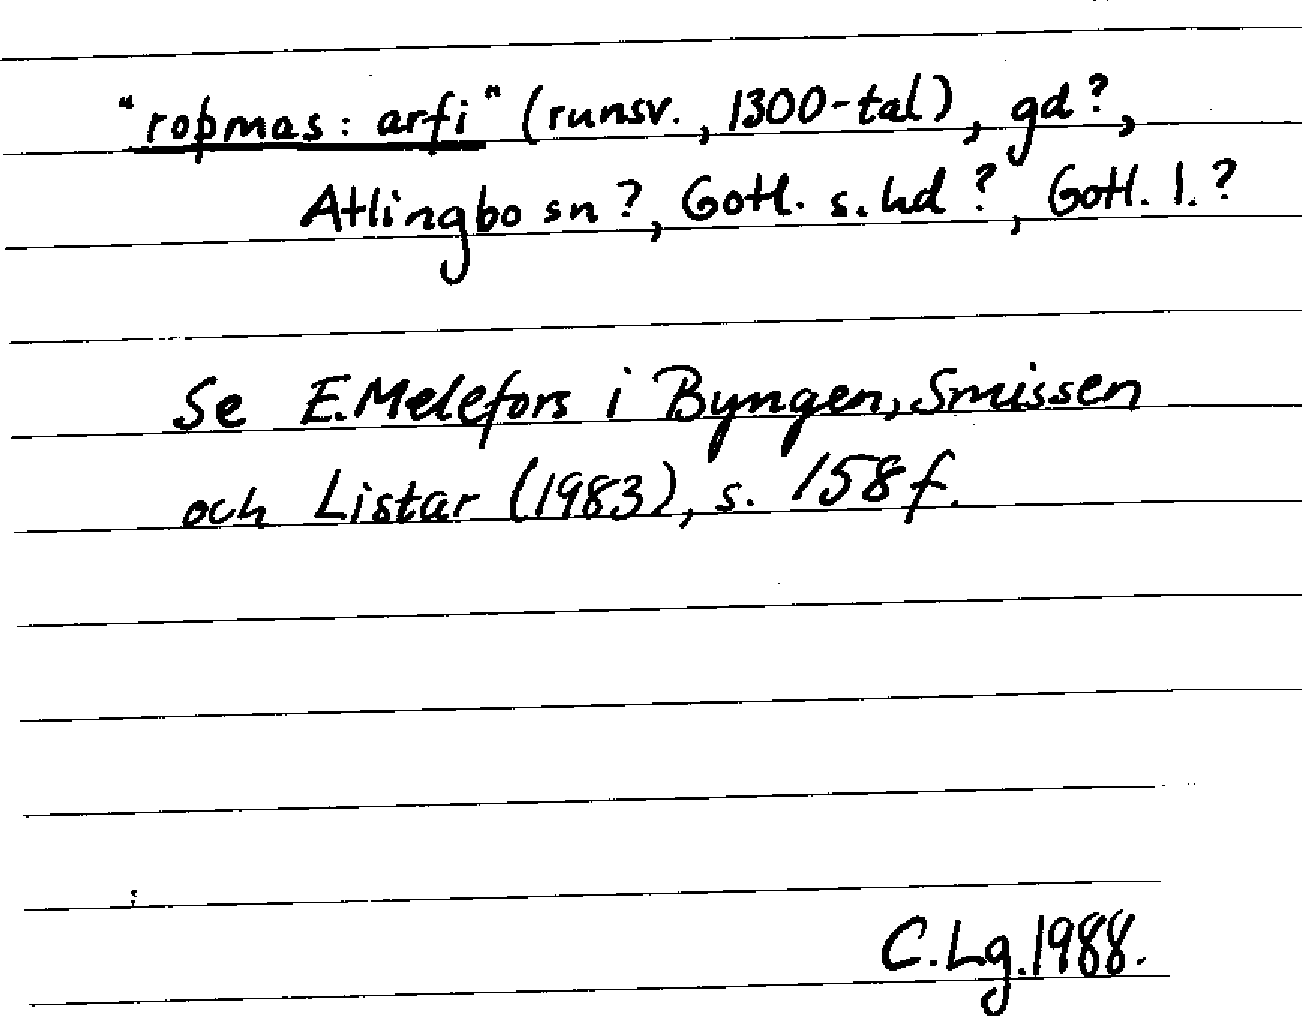 "roþmas : arfi" (runsv., 1300-tal), gd?,
Atlingbo sn?, Gotl. s. hd?, Gotl. l.?
Se E. Melefors i Byngen, Smissen
och Listar (1983), s. 158 f.
C. Lg. 1988.